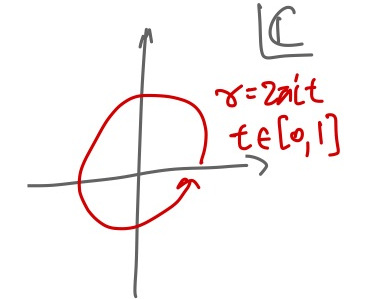 ℂ
γ=2πit
t∈[0,1]